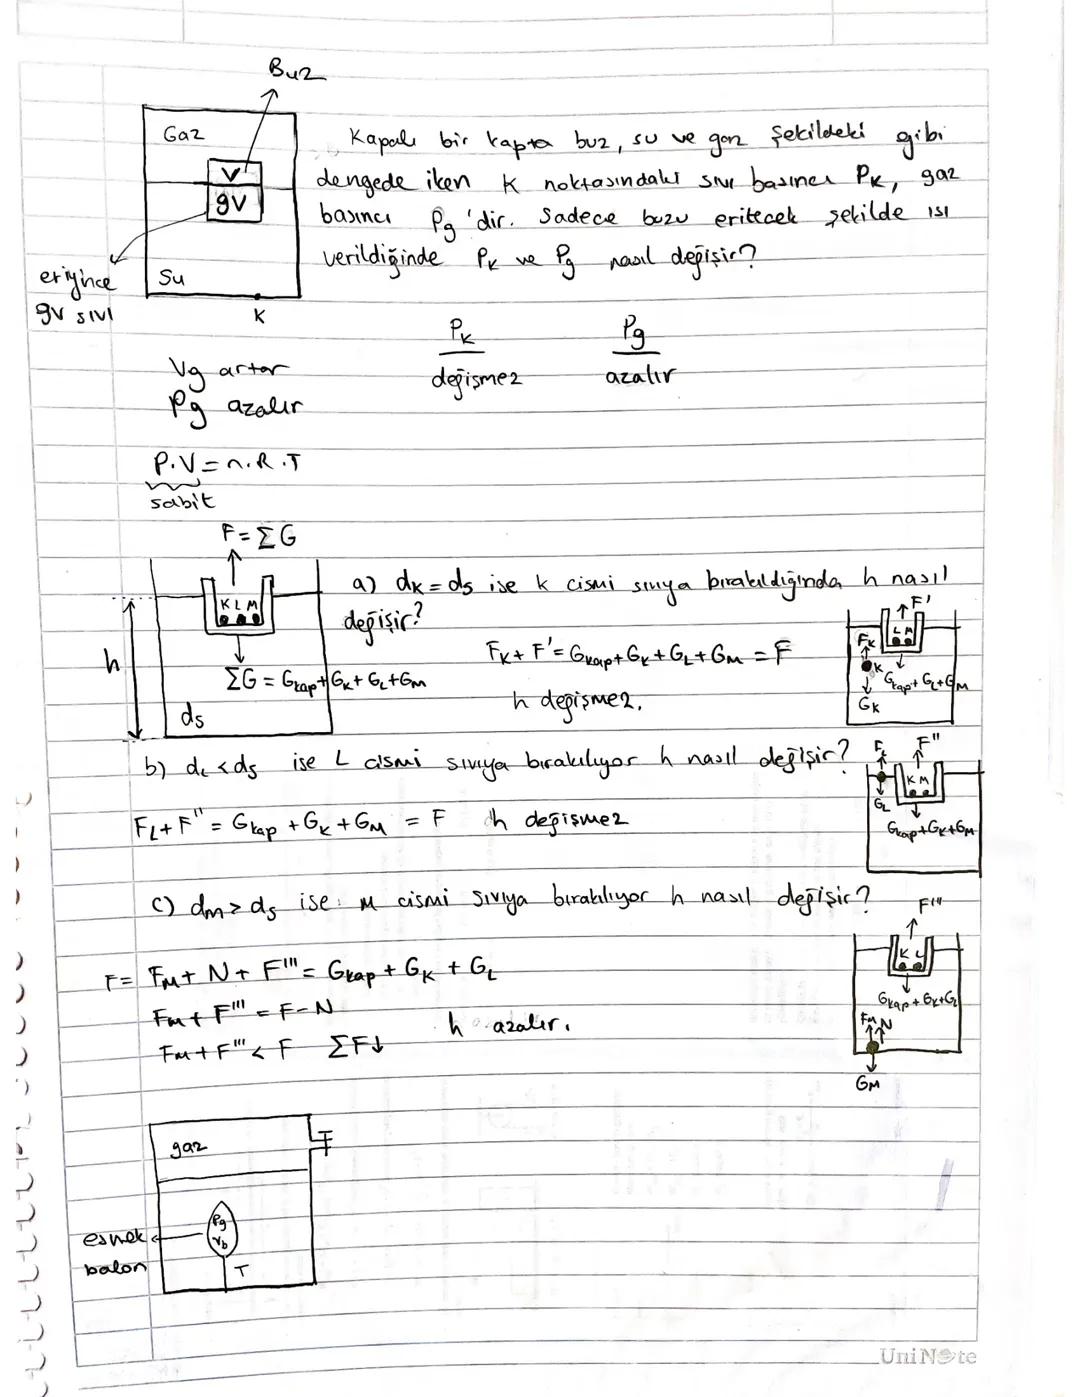 Buz
Gaz
V
9V
Su
K
eriyince
9V sıvı
Kapalı bir kapta buz, su ve gaz şekildeki gibi
dengede iken K noktasındaki sıvı basıncı PK, gaz
basıncı Pg 'dir. Sadece buzu eritecek şekilde ısı
verildiğinde PK ve Pg nasıl değişir?
PK Pg
değişmez azalır
Vg artar
Pg azalır
P.V = n.R.T
sabit
F = ΣG
K L M
h
ΣG = Gkap + GK + GL + GM
ds
a) dK = ds ise K cismi sıvıya bırakıldığında h nasıl
değişir?
FK + F' = Gkap + GK + GL + GM = F
h değişmez.
F'
L M
FK
K
Gkap + GL + GM
GK
b) dL < ds ise L cismi sıvıya bırakılıyor h nasıl değişir?
FL + F" = Gkap + GK + GM = F h değişmez
FL F"
K M
GL
Gkap + GK + GM
c) dM > ds ise M cismi sıvıya bırakılıyor h nasıl değişir?
F = FM + N + F''' = Gkap + GK + GL
FM + F''' = F - N
FM + F''' < F ΣF↓
h azalır.
F'''
K L
Gkap + GK + GL
FM N
GM
gaz
Pg
Vb
esnek
balon
T
UniNote